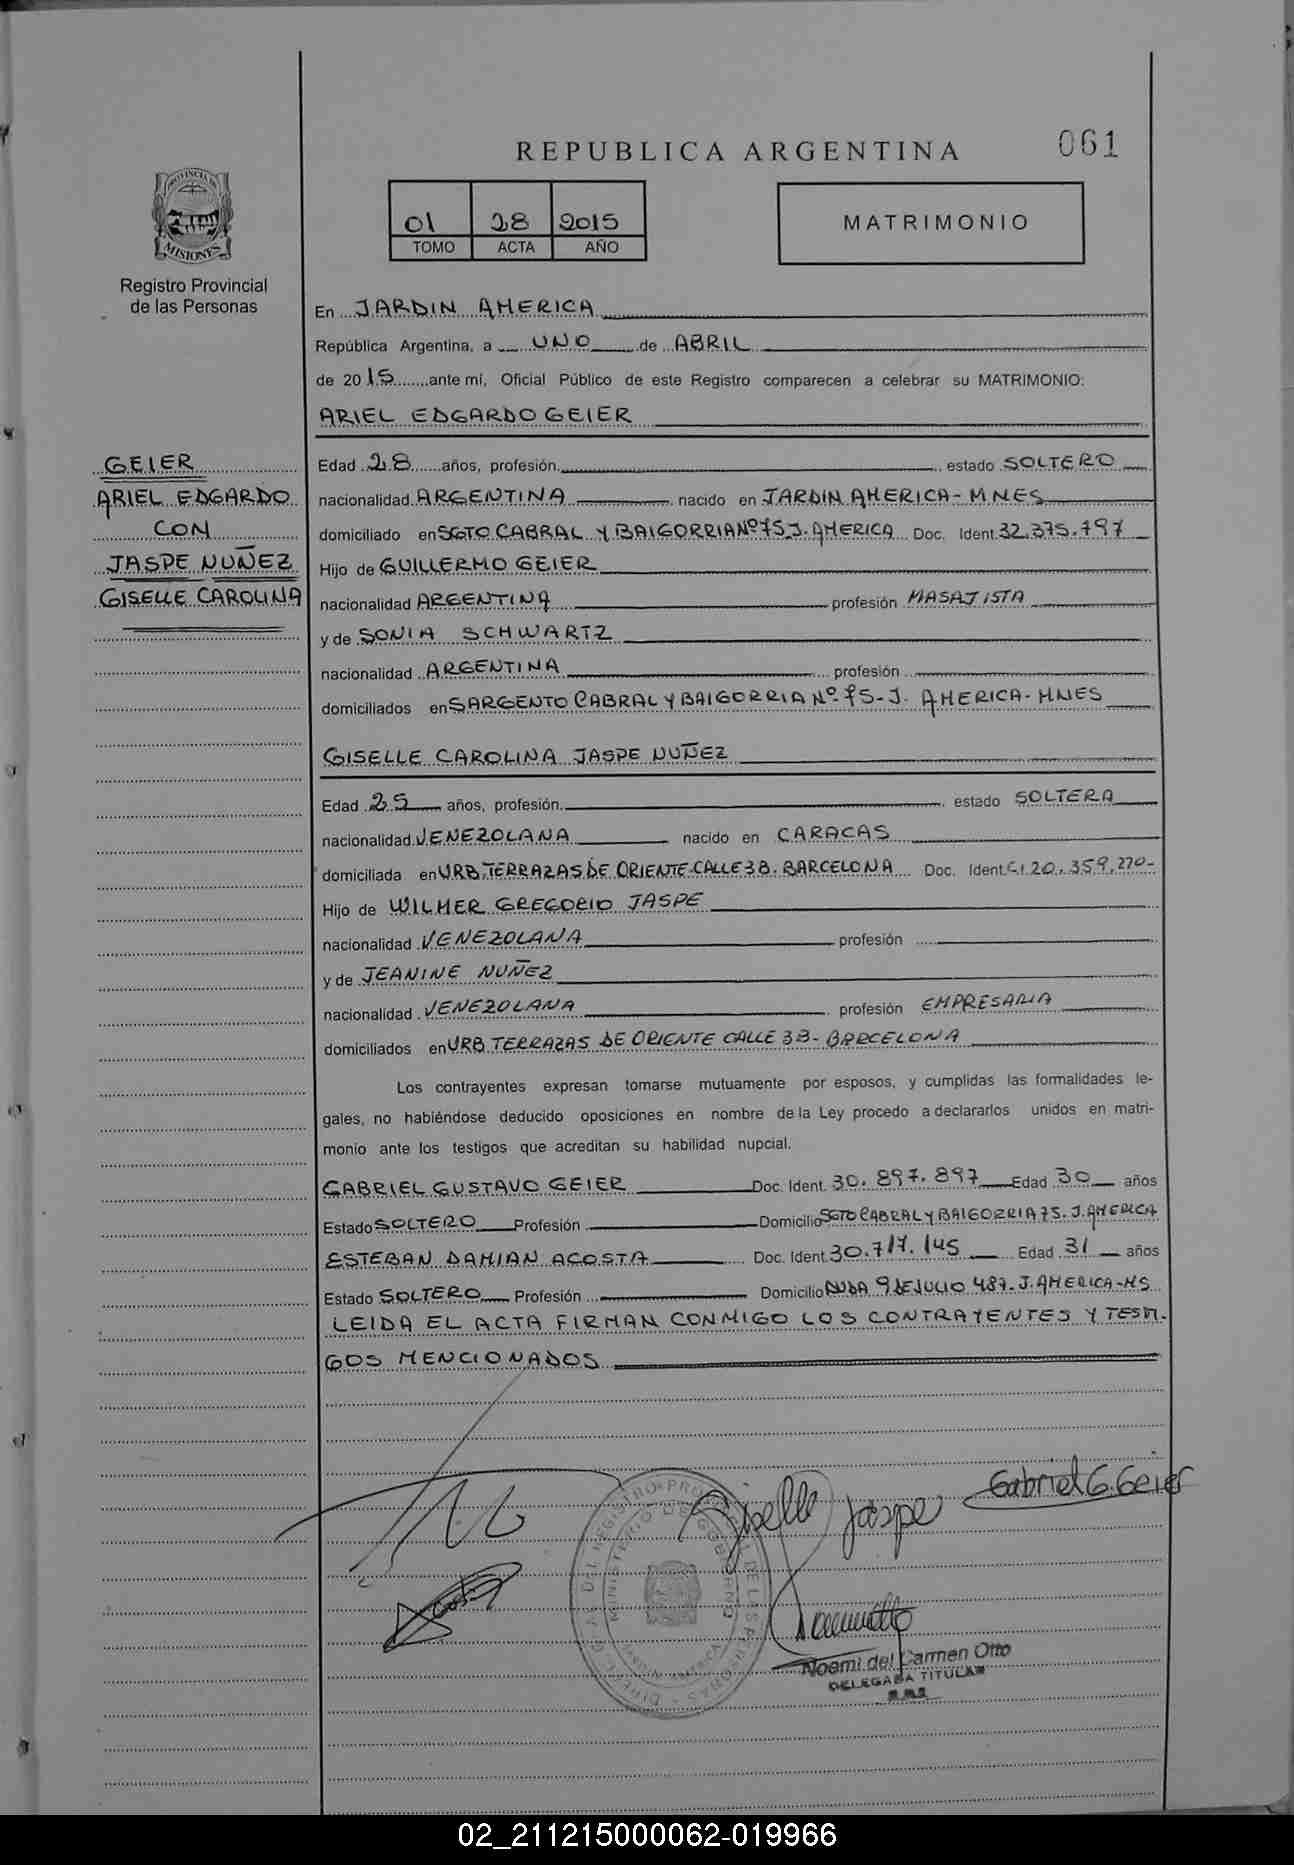 REPUBLICA ARGENTINA
061
PROVINCIA DE
MISIONES
Registro Provincial
de las Personas
01 28 2015
TOMO ACTA AÑO
MATRIMONIO
En JARDIN AMERICA
República Argentina, a UNO de ABRIL
de 2015 ante mí, Oficial Público de este Registro comparecen a celebrar su MATRIMONIO:
ARIEL EDGARDO GEIER
GEIER
ARIEL EDGARDO
CON
JASPE NUÑEZ
GISELLE CAROLINA
Edad 28 años, profesión estado SOLTERO
nacionalidad ARGENTINA nacido en JARDIN AMERICA-MNES
domiciliado en SGTO CABRAL Y BAIGORRIA Nº 75 J. AMERICA Doc. Ident. 32.375.797
Hijo de GUILLERMO GEIER
nacionalidad ARGENTINA profesión MASAJISTA
y de SONIA SCHWARTZ
nacionalidad ARGENTINA profesión
domiciliados en SARGENTO CABRAL Y BAIGORRIA Nº 75-J. AMERICA-MNES
GISELLE CAROLINA JASPE NUÑEZ
Edad 25 años, profesión. estado SOLTERA
nacionalidad VENEZOLANA nacido en CARACAS
domiciliada en URB. TERRAZAS DE ORIENTE-CALLE 3B. BARCELONA Doc. Ident. 20.359.270-
Hijo de WILMER GREGORIO JASPE
nacionalidad VENEZOLANA profesión
y de JEANINE NUÑEZ
nacionalidad VENEZOLANA profesión EMPRESARIA
domiciliados en URB TERRAZAS DE ORIENTE CALLE 3B-BARCELONA
Los contrayentes expresan tomarse mutuamente por esposos, y cumplidas las formalidades le-
gales, no habiéndose deducido oposiciones en nombre de la Ley procedo a declararlos unidos en matri-
monio ante los testigos que acreditan su habilidad nupcial.
GABRIEL GUSTAVO GEIER Doc. Ident. 30.897.897 Edad 30 años
Estado SOLTERO Profesión Domicilio SGTO CABRAL Y BAIGORRIA 75. J. AMERICA
ESTEBAN DAMIAN ACOSTA Doc. Ident. 30.717.145 Edad 31 años
Estado SOLTERO Profesión Domicilio AVDA 9 DE JULIO 487-J. AMERICA-MS
LEIDA EL ACTA FIRMAN CONMIGO LOS CONTRAYENTES Y TESTI-
GOS MENCIONADOS
Giselle Jaspe
Gabriel G. Geier
Noemi del Carmen Otto
DELEGADA TITULAR
02_211215000062-019966